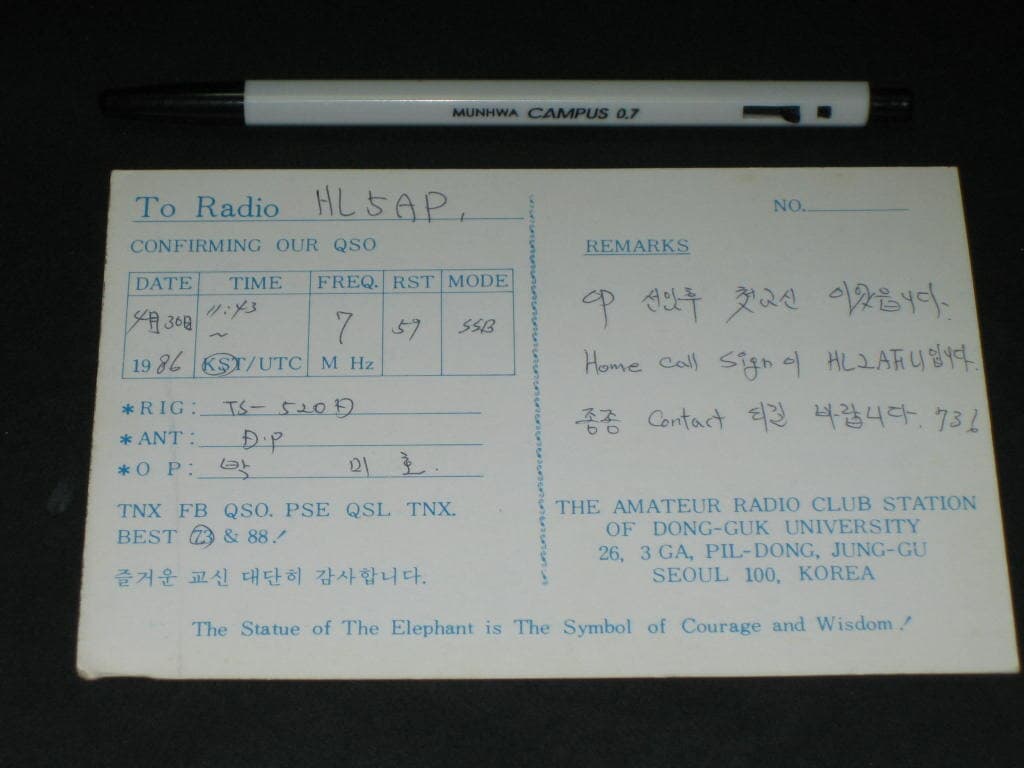 MUNHWA CAMPUS 0.7
To Radio HL5AP,
CONFIRMING OUR QSO
DATE TIME FREQ. RST MODE
4月30日 11:43 ~ 7 59 SSB
1986 KST/UTC M Hz
*RIG: TS-520D
*ANT: D.P
*O P: 박 미호.
TNX FB QSO. PSE QSL TNX.
BEST 73 & 88!
즐거운 교신 대단히 감사합니다.
NO.
REMARKS
OP 선임후 첫교신 이었읍니다.
Home call sign이 HL2AFU입니다.
종종 Contact 되길 바랍니다. 73
THE AMATEUR RADIO CLUB STATION
OF DONG-GUK UNIVERSITY
26, 3 GA, PIL-DONG, JUNG-GU
SEOUL 100, KOREA
The Statue of The Elephant is The Symbol of Courage and Wisdom!